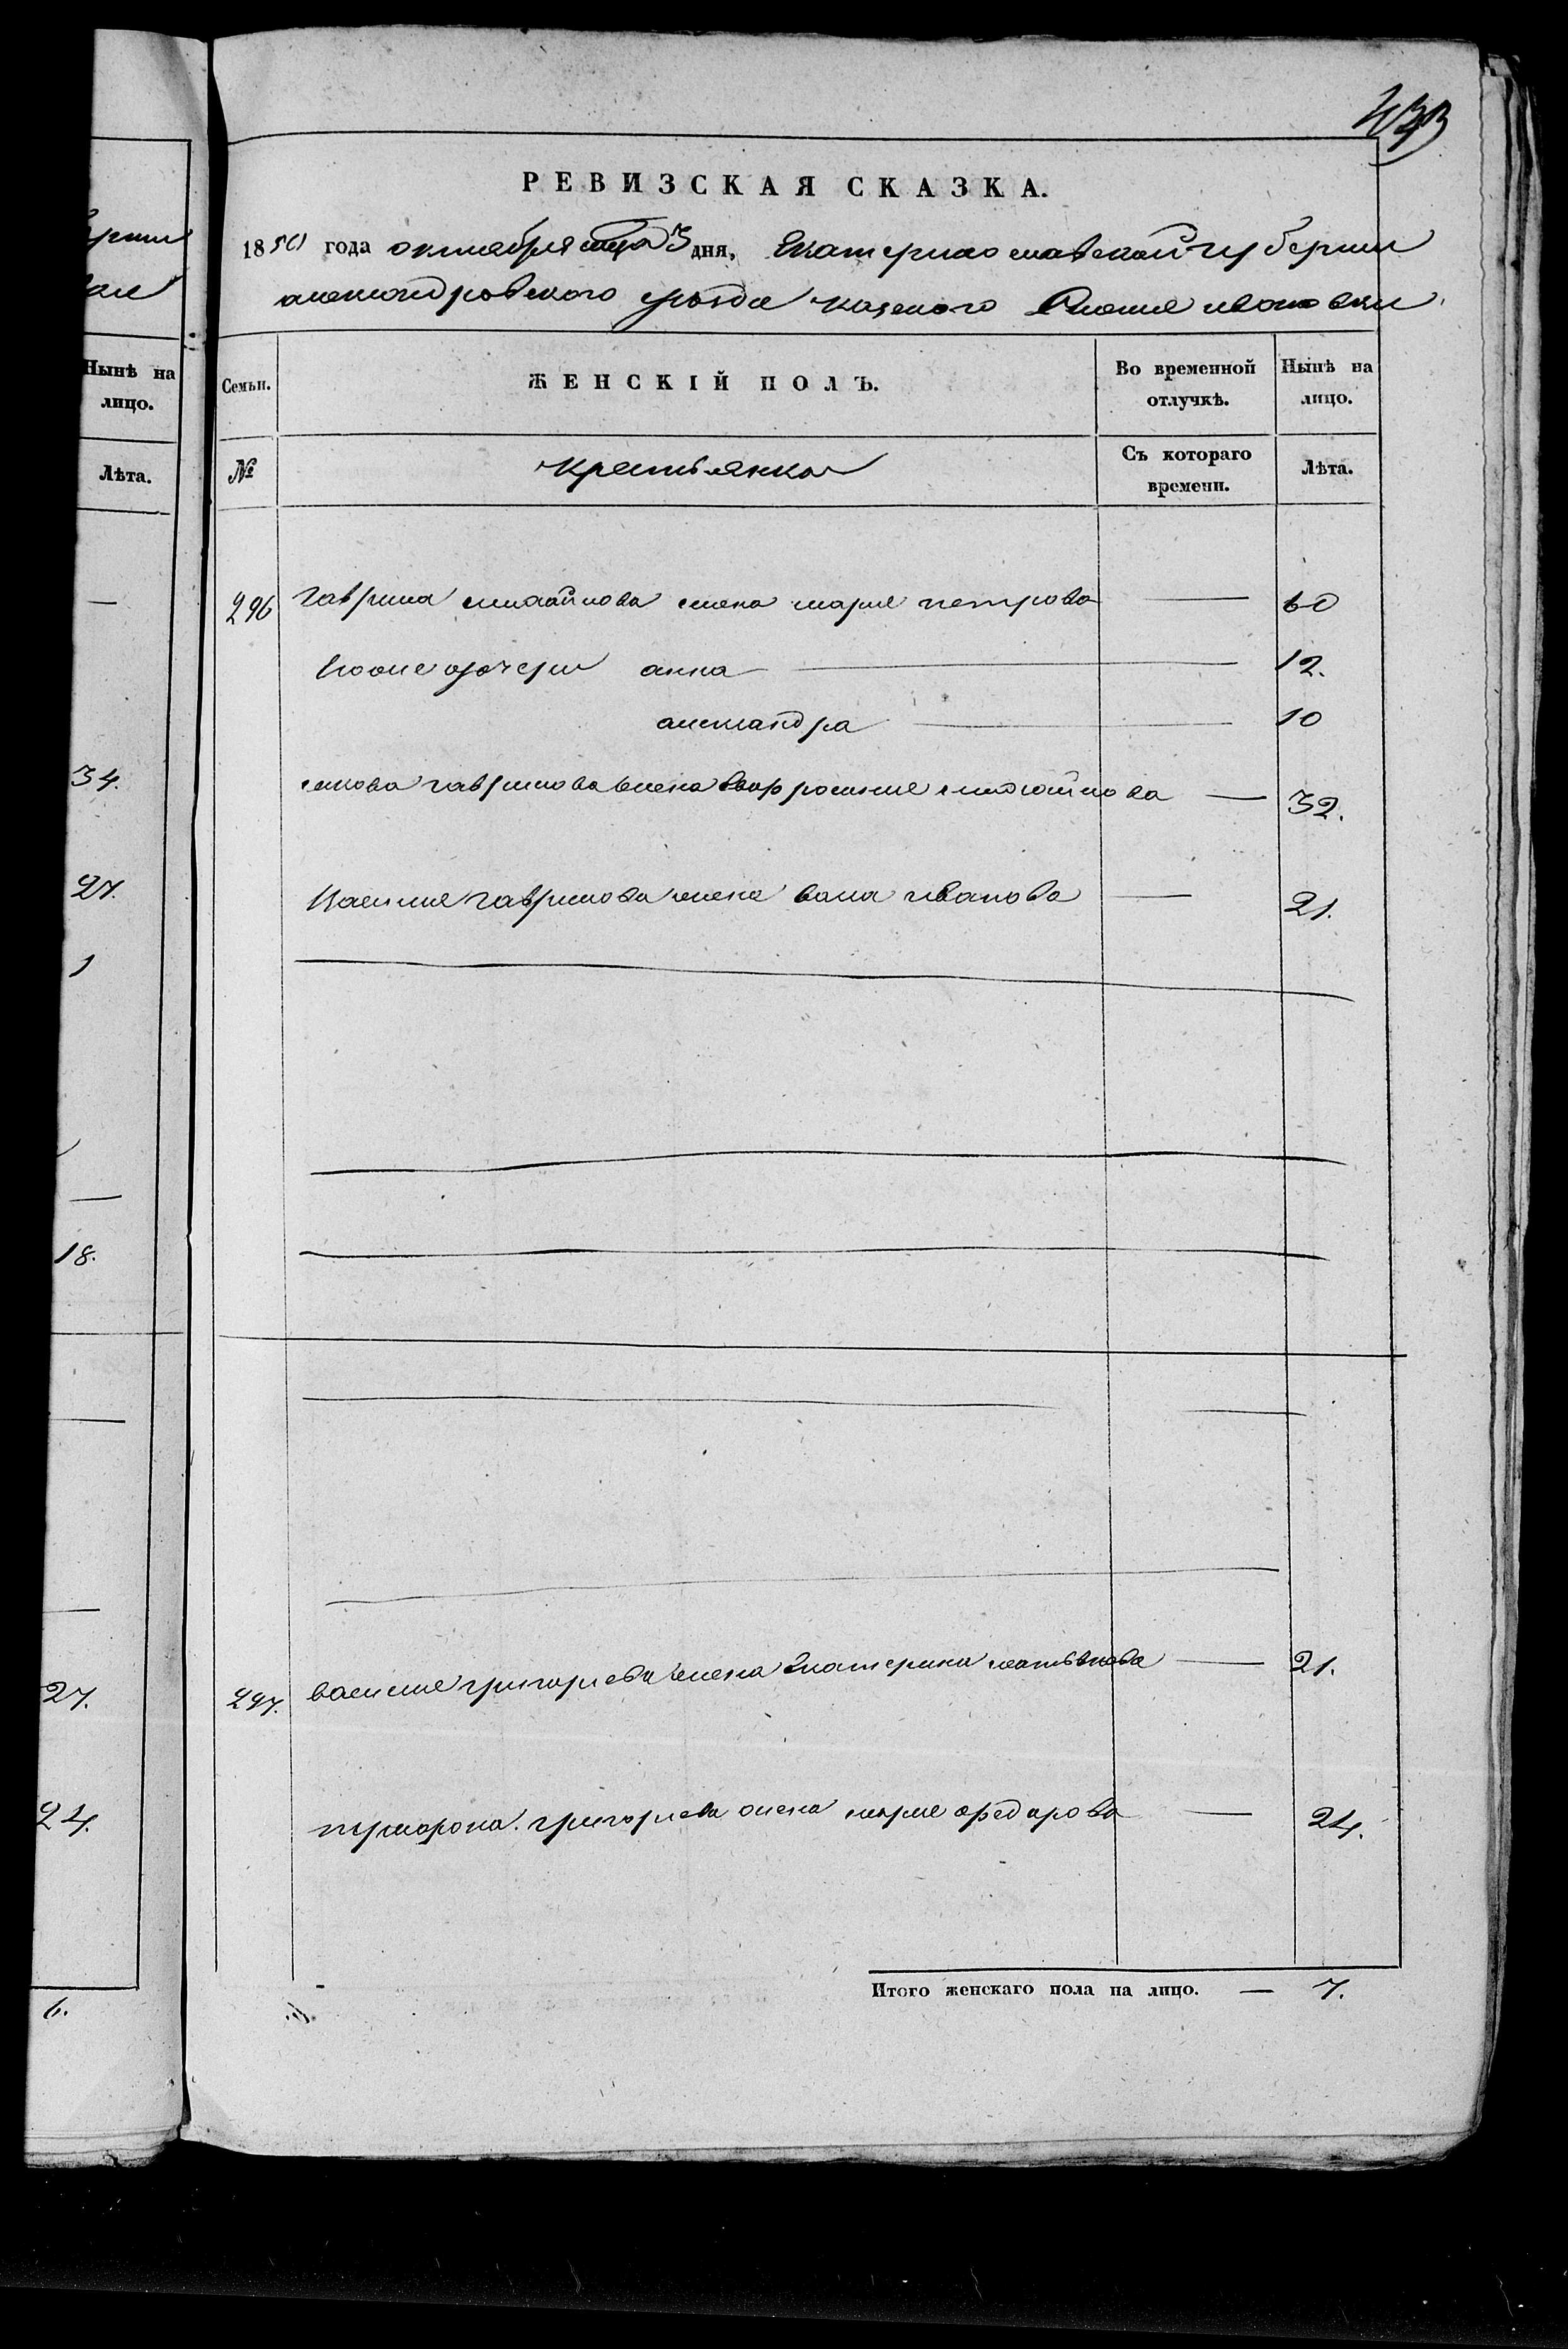 433
РЕВИЗСКАЯ СКАЗКА.
1850 года октября 3 дня, Екатеринославской губернии
александровского уезда казеного Ивановки
Семьи. ЖЕНСКІЙ ПОЛЪ. Во временной отлучкѣ. Нынѣ на лицо.
№ крестьянка Съ котораго времени. Лѣта.
296 гаврила михайлова жена марие петрова — 60
дочери анна — 12.
александра — 10
якова гаврилова жена михайлова — 32.
Василие гаврилова жена иванова — 21.
297. василие григориева жена Екатерина матвѣева — 21.
григориева жена марие федарова — 24.
Итого женскаго пола на лицо. — 7.
Нынѣ на
лицо.
Лѣта.
34.
27.
1
18.
27.
24.
6.